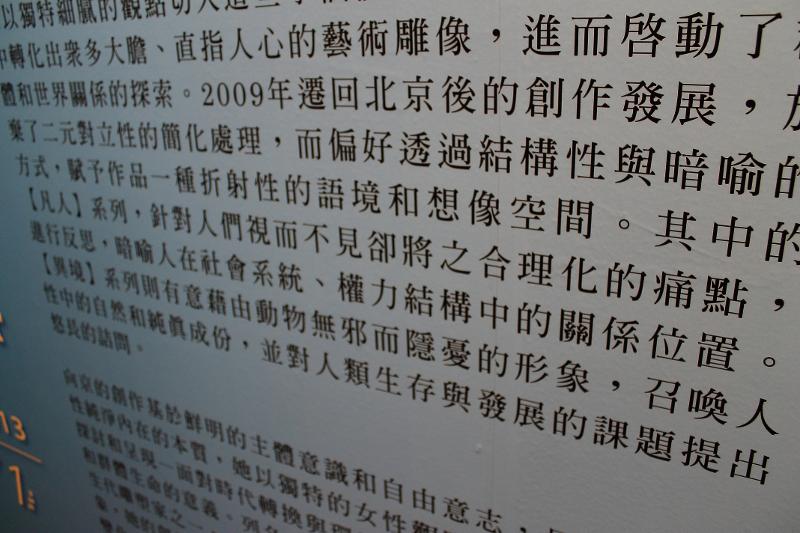 以獨特細膩的觀點切入這
中轉化出衆多大膽、直指人心的藝術雕像，進而啓動了
體和世界關係的探索。2009年遷回北京後的創作發展，
棄了二元對立性的簡化處理，而偏好透過結構性與暗喻的
方式，賦予作品一種折射性的語境和想像空間。其中的
【凡人】系列，針對人們視而不見卻將之合理化的痛點，
進行反思，暗喻人在社會系統、權力結構中的關係位置。
【異境】系列則有意藉由動物無邪而隱憂的形象，召喚人
性中的自然和純眞成份，並對人類生存與發展的課題提出
悠長的詰問。
向京的創作基於鮮明的主體意識和自由意志，
性純淨內在的本質，她以獨特的女性觀
探討和呈現一面對時代轉換與環
和群體生命的意義。列
生代雕塑家之一
象，她的
13
1